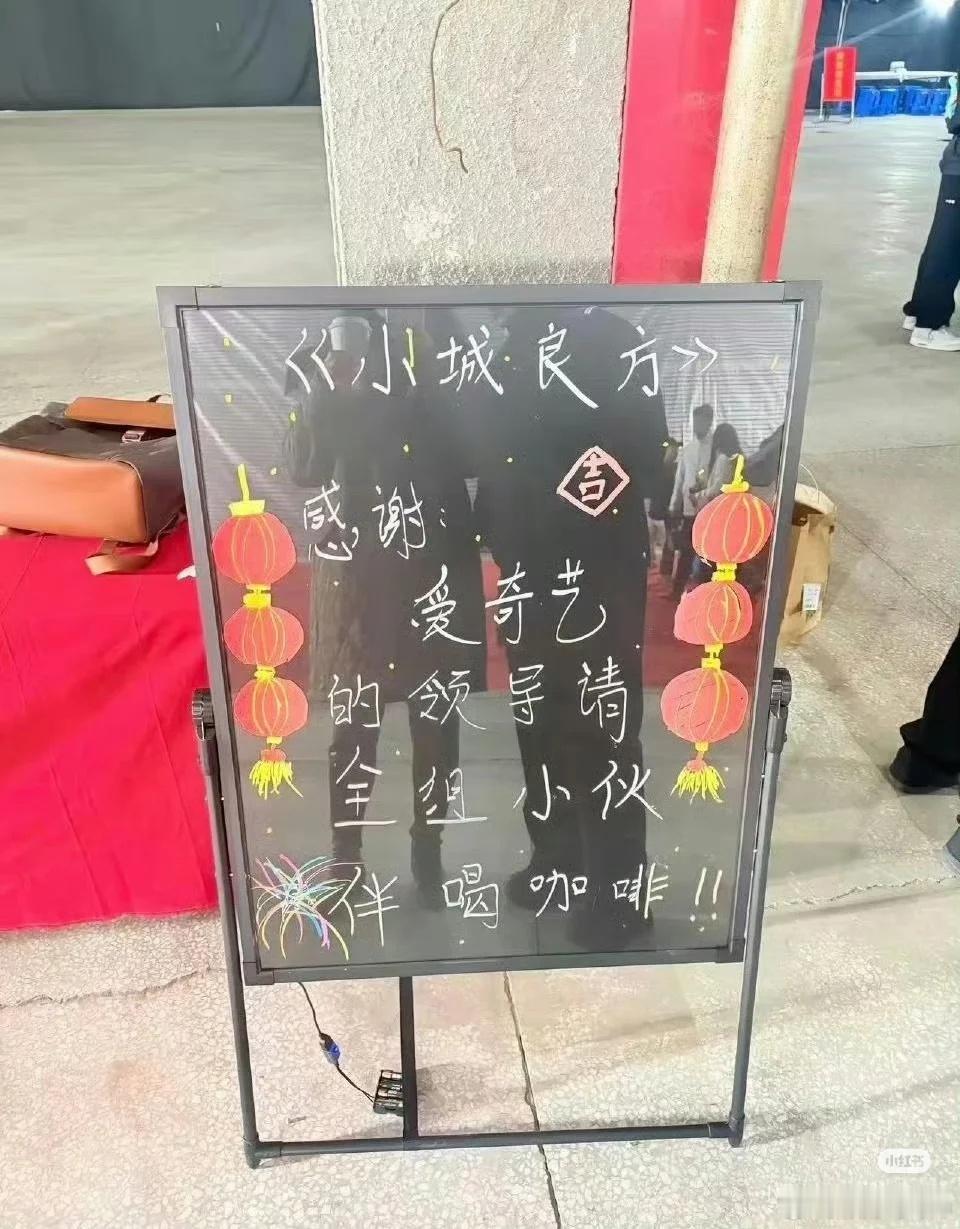 《小城良方》
吉
感谢:
爱奇艺
的领导请
全组小伙
伴喝咖啡!!
小红书